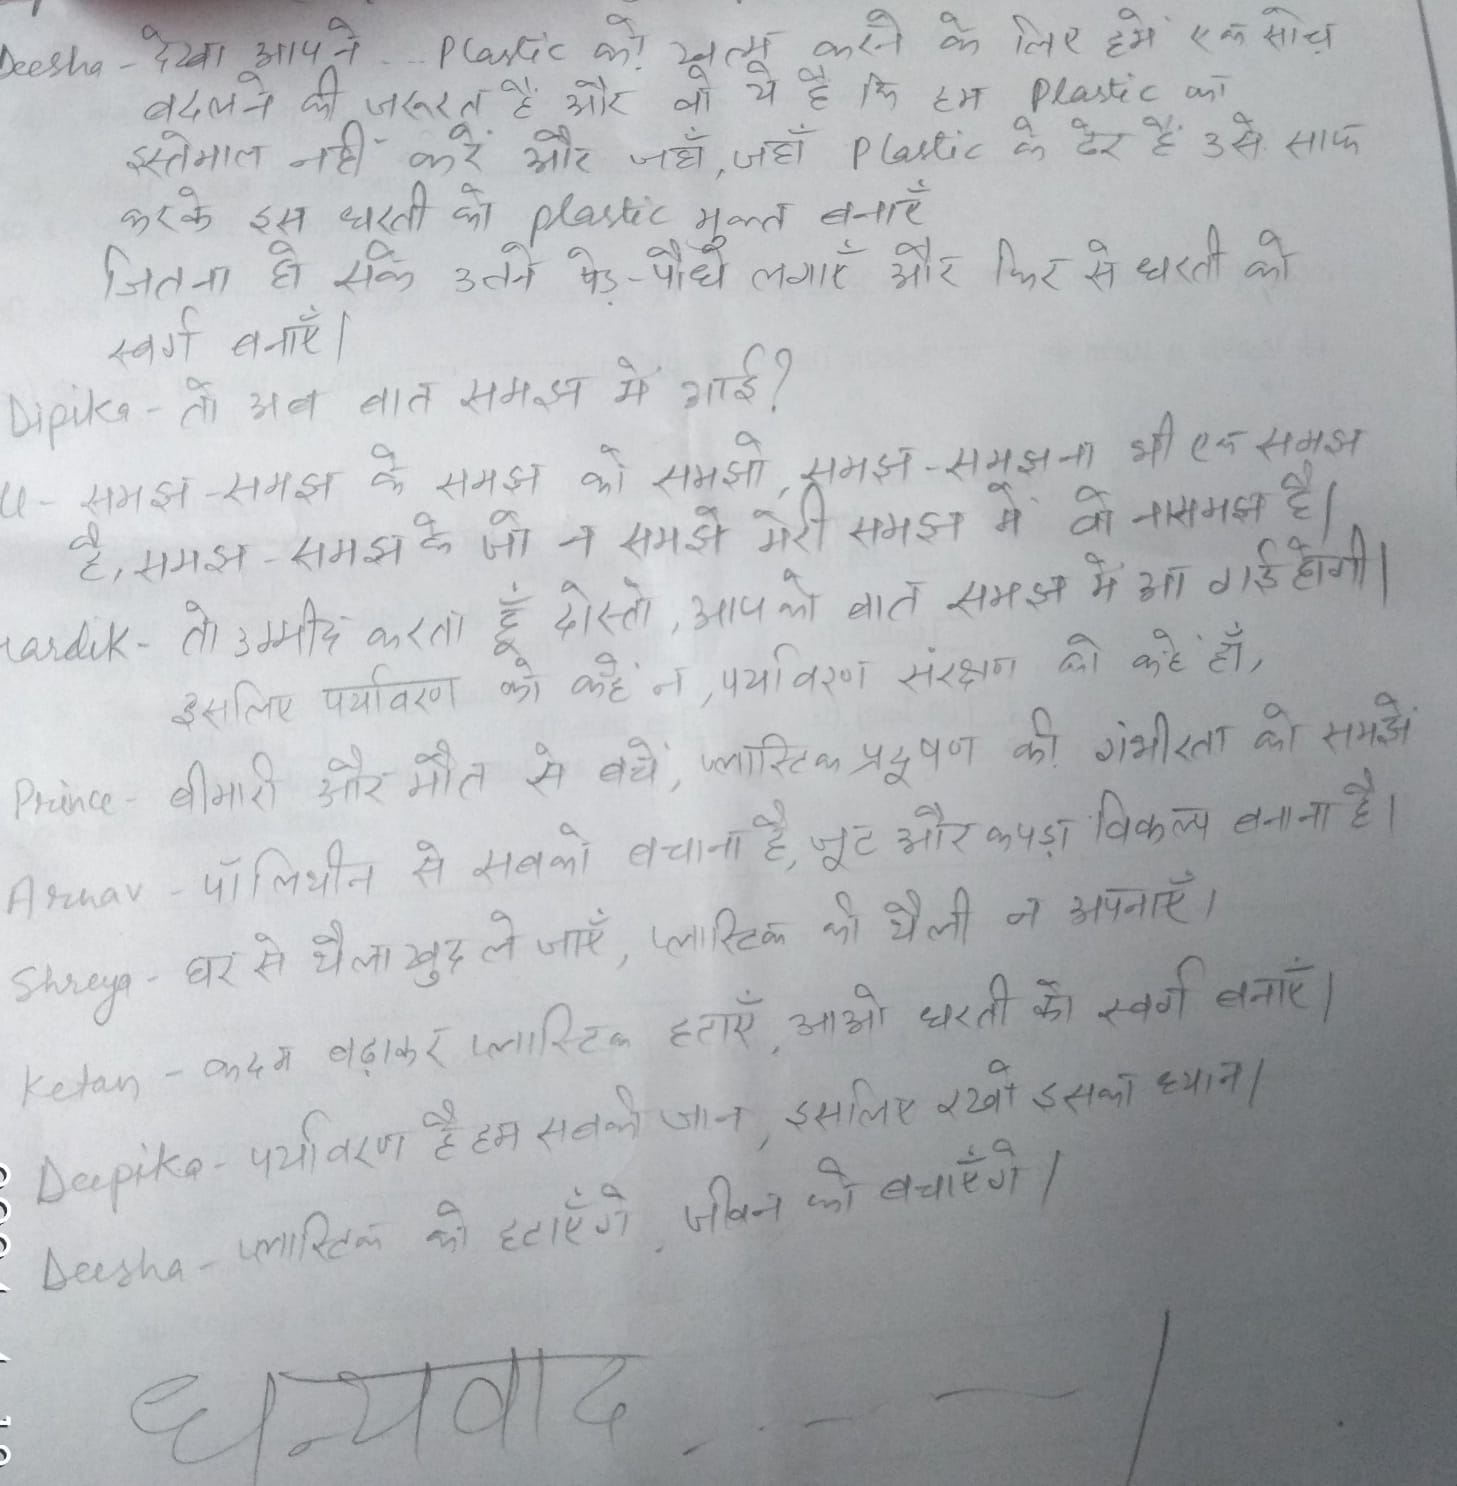 Deesha - देखा आपने ... Plastic को खत्म करने के लिए हमें एक सोच
बदलने की जरूरत है और वो ये है कि हम Plastic का
इस्तेमाल नहीं करें और जहाँ, जहाँ Plastic के ढेर हैं उसे साफ
करके इस धरती को plastic मुक्त बनाएँ
जितना हो सके उतने पेड़-पौधे लगाएँ और फिर से धरती को
स्वर्ग बनाएँ।
Dipika - तो अब बात समझ में आई?
u - समझ-समझ के समझ को समझो, समझ-समझना भी एक समझ
है, समझ-समझ के जो न समझे मेरी समझ में वो नासमझ है।
ardik - तो उम्मीद करता हूँ दोस्तो, आपको बात समझ में आ गई होगी।
इसलिए पर्यावरण को कहें न, पर्यावरण संरक्षण को कहें हाँ,
Prince - बीमारी और मौत से बचें, प्लास्टिक प्रदूषण की गंभीरता को समझें
Arnav - पॉलिथीन से सबको बचाना है, जूट और कपड़ा विकल्प बनाना है।
Shreya - घर से थैला खुद ले जाएँ, प्लास्टिक की थैली न अपनाएँ।
Ketan - कदम बढ़ाकर प्लास्टिक हटाएँ, आओ धरती को स्वर्ग बनाएँ।
Deepika - पर्यावरण है हम सबकी जान, इसलिए रखो इसका ध्यान।
Deesha - प्लास्टिक को हटाएँगे, जीवन को बचाएँगे।
धन्यवाद . . . — ।